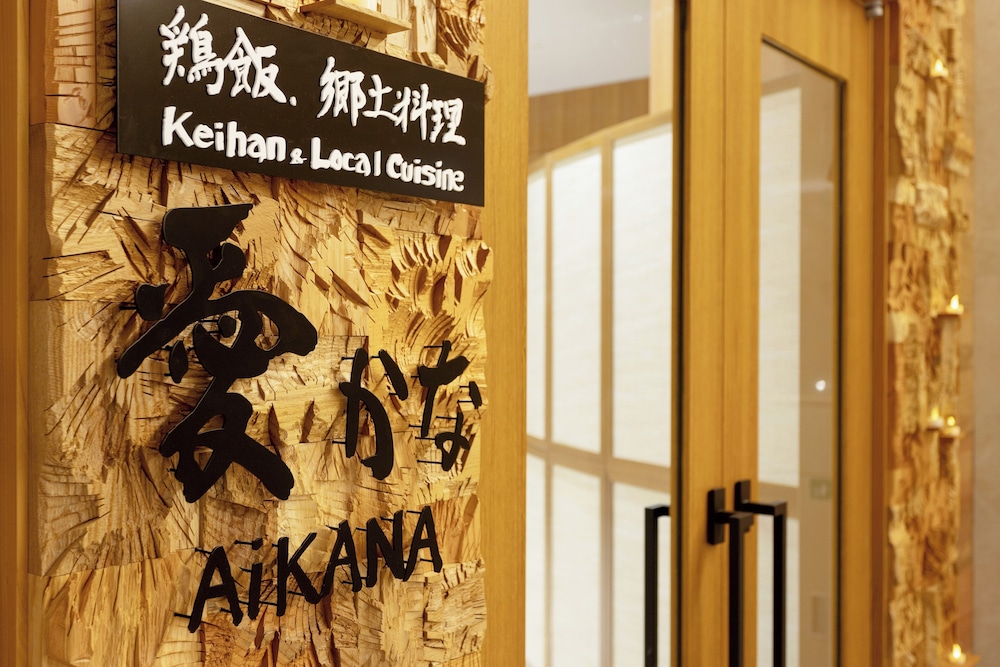 鶏飯、郷土料理
Keihan & Local Cuisine
愛かな
AiKANA